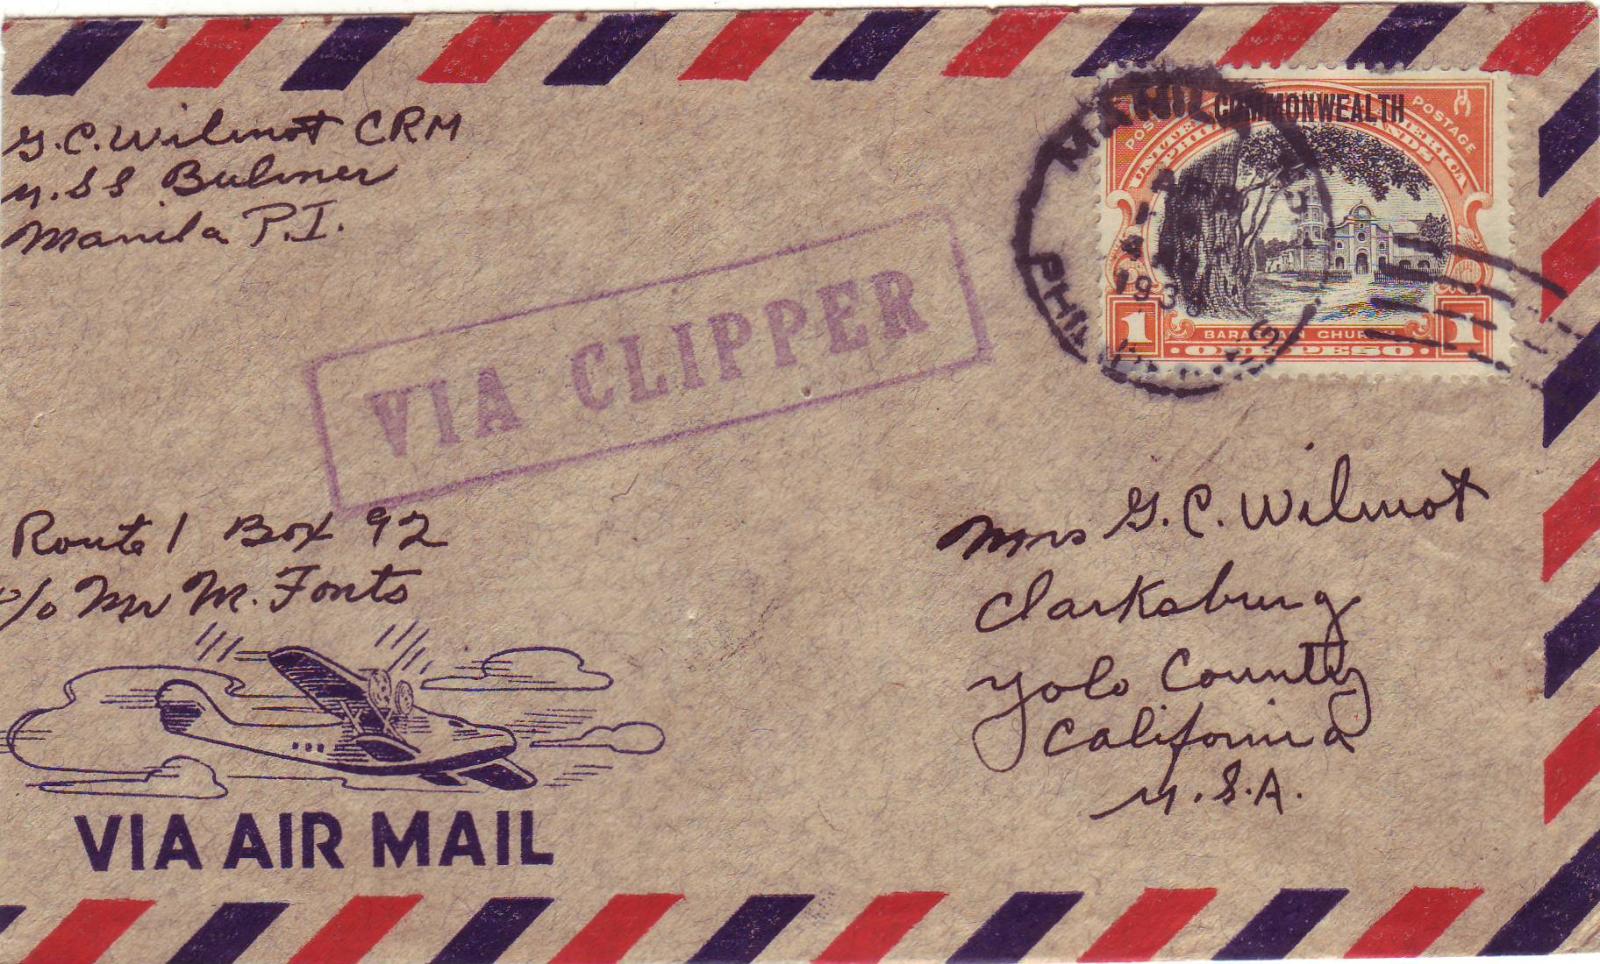 G. C. Wilmot CRM
U.S S Bulmer
Manila P.I.
VIA CLIPPER
MANILA
APR
4 AM
193
PHIL
COMMONWEALTH
POSTAGE
UNITED STATES OF AMERICA
PHILIPPINE ISLANDS
1 BARASOAIN CHURCH 1
ONE PESO
Route 1 Box 92
c/o Mr M. Fonts
Mrs G. C. Wilmot
Clarksburg
Yolo County
California
U.S.A.
VIA AIR MAIL